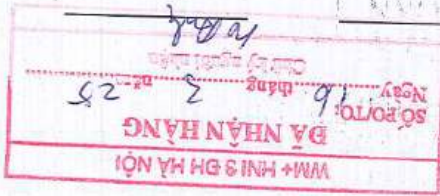 WM+ HNI 3 ĐH HÀ NỘI
ĐÃ NHẬN HÀNG
SỐ PO/TO:
Ngày 16 tháng 3 năm 25
Chữ ký người nhận